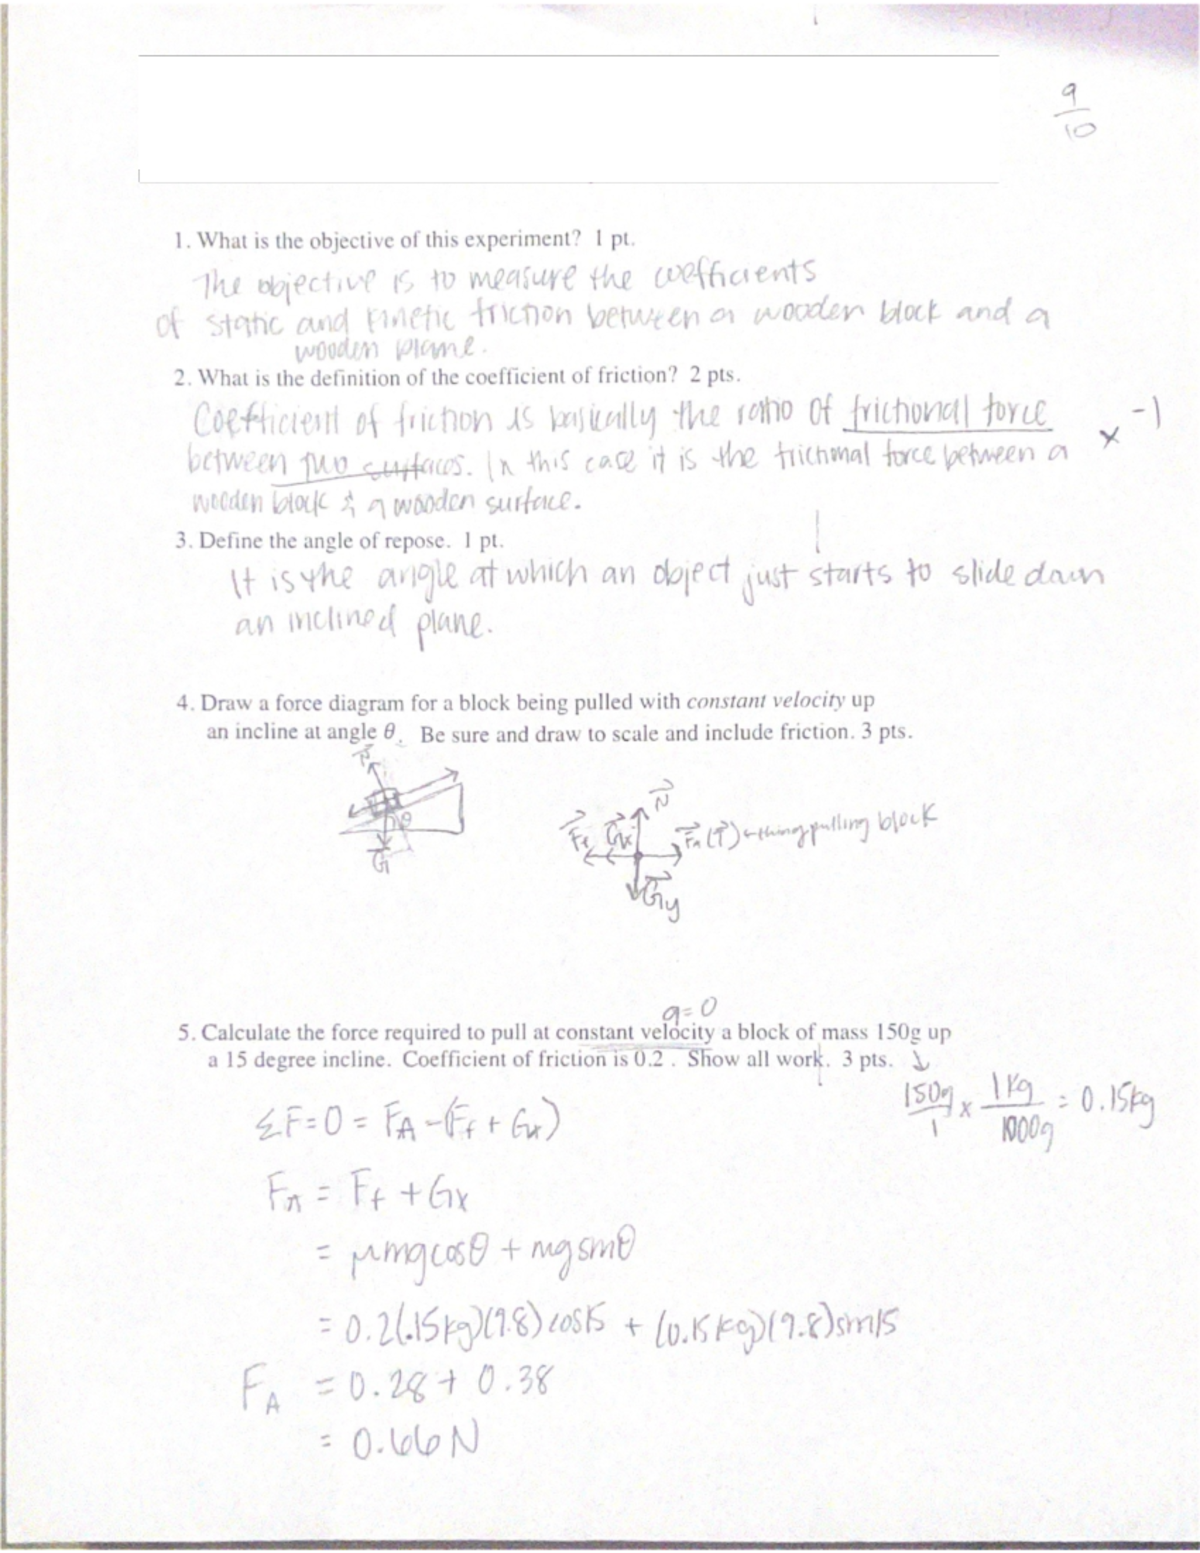 9
10
1. What is the objective of this experiment? 1 pt.
The objective is to measure the coefficients
of static and kinetic friction between a wooden block and a
wooden plane.
2. What is the definition of the coefficient of friction? 2 pts.
Coefficient of friction is basically the ratio of frictional force
x -1
between two surfaces. In this case it is the frictional force between a
wooden block & a wooden surface.
3. Define the angle of repose. 1 pt.
It is the angle at which an object just starts to slide down
an inclined plane.
4. Draw a force diagram for a block being pulled with constant velocity up
an incline at angle θ. Be sure and draw to scale and include friction. 3 pts.
θ
G
N
Ff Gx FA (T) ← thing pulling block
Gy
a=0
5. Calculate the force required to pull at constant velocity a block of mass 150g up
a 15 degree incline. Coefficient of friction is 0.2 . Show all work. 3 pts. ↓
150g/1 x 1kg/1000g = 0.15kg
ΣF=0 = FA -(Ff + Gx)
FA = Ff + Gx
= μmgcosθ + mgsinθ
= 0.2(.15kg)(9.8)cos15 + (0.15kg)(9.8)sin15
FA = 0.28 + 0.38
= 0.66N